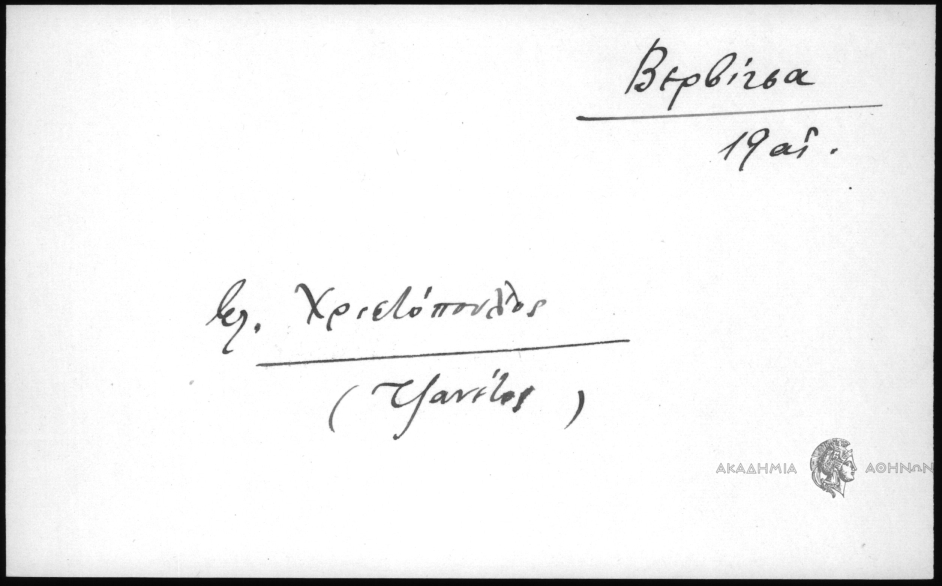 Βερβίτσα
19 αἰ.
Χριστόπουλος
(Τζανέτος)
ΑΚΑΔΗΜΙΑ ΑΘΗΝΩΝ